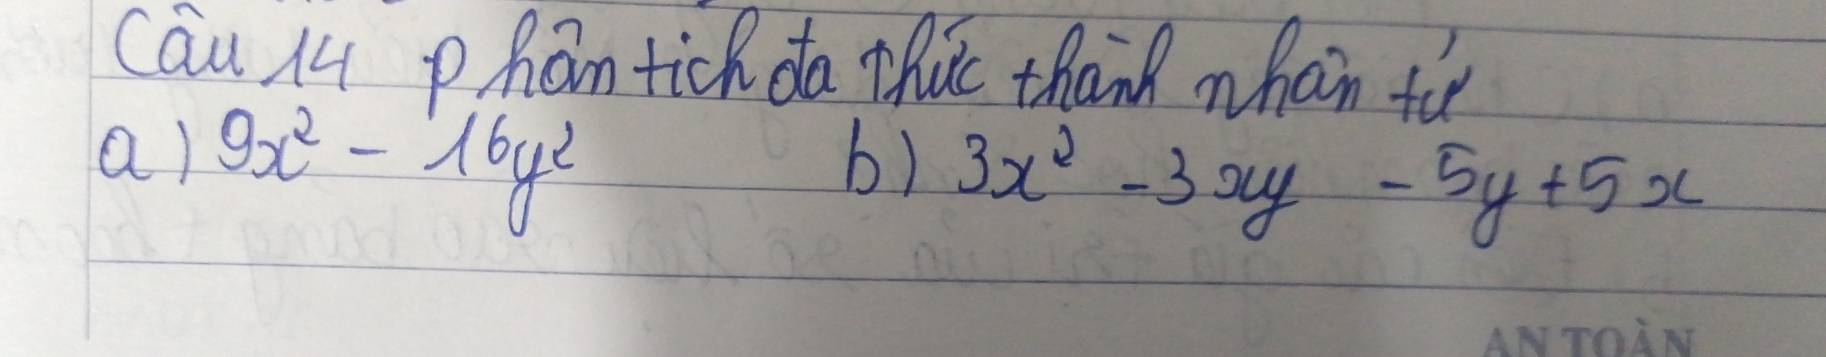 Câu 14 phân tích đa thức thành nhân tử
a) 9x² - 16y² b) 3x² - 3xy - 5y + 5x
AN TOÀN